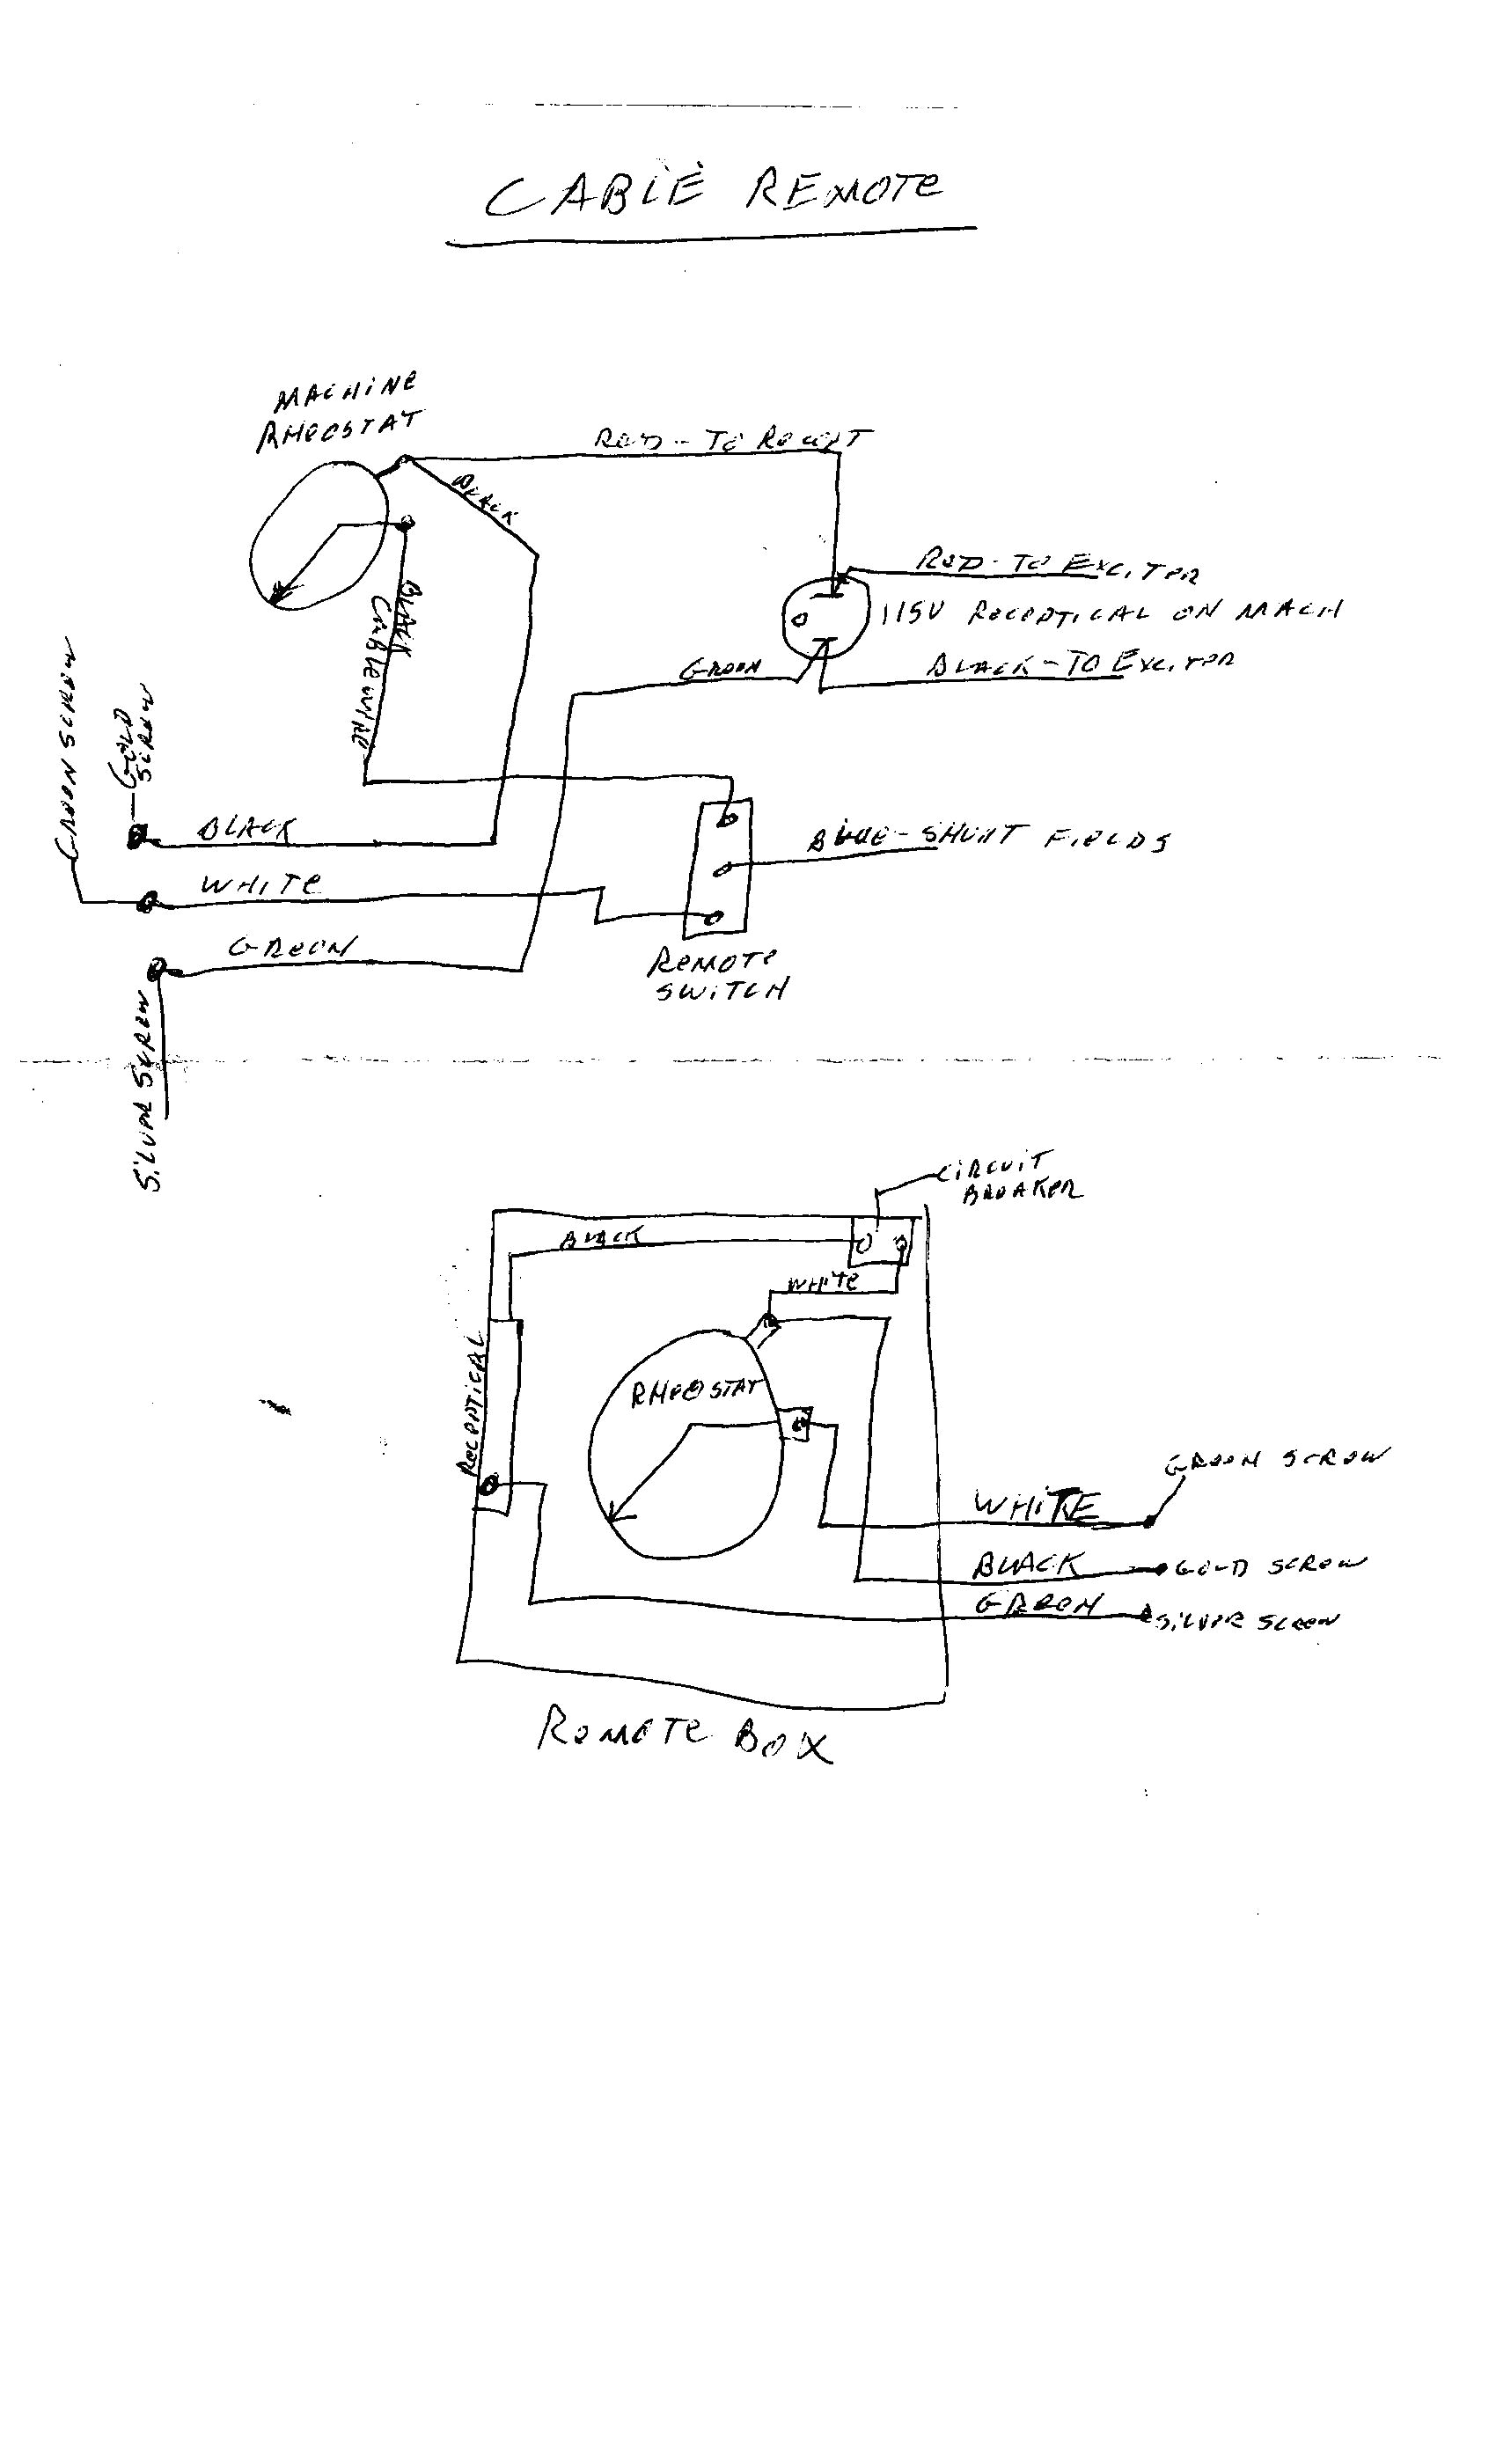 CABLE REMOTE
MACHINE
RHEOSTAT
RED - TO RECEPT
BLACK
BLACK
CABLE WIRE
RED - TO EXCITER
115V RECEPTICAL ON MACH
GREEN
BLACK - TO EXCITER
GREEN SCREW
GOLD
SCREW
BLACK
BLUE - SHUNT FIELDS
WHITE
GREEN
REMOTE
SWITCH
SILVER SCREW
CIRCUIT
BREAKER
BLACK
WHITE
RECEPTICAL
RHEOSTAT
GREEN SCREW
WHITE
BLACK
GOLD SCREW
GREEN
SILVER SCREW
REMOTE BOX